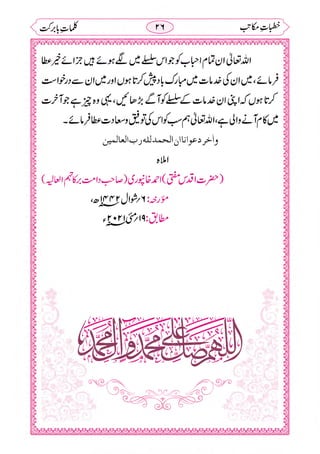 خطباتِ مکاتب
۲۶
کلماتِ بابرکت
اللہ تعالیٰ ان تمام احباب کو جو اس سلسلے میں لگے ہوئے ہیں جزائے خیر عطا
فرمائے، میں ان کی خدمات میں مبارک باد پیش کرتا ہوں اور میں ان سے درخواست
کرتا ہوں کہ اپنی ان خدمات کے سلسلے کو آگے بڑھائیں، یہی وہ چیز ہے جو آخرت
میں کام آنے والی ہے، اللہ تعالیٰ ہم سب کو اس کی توفیق وسعادت عطا فرمائے۔
وآخر دعوانا ان الحمد لله رب العالمین
املاہ
(حضرت اقدس مفتی) احمد خانپوری (صاحب دامت برکاتہم العالیہ)
مؤرخہ: ۶/شوال ۱۴۴۲ھ،
مطابق: ۱۹/مئی ۲۰۲۱ء
اللهم صل على محمد وآل محمد